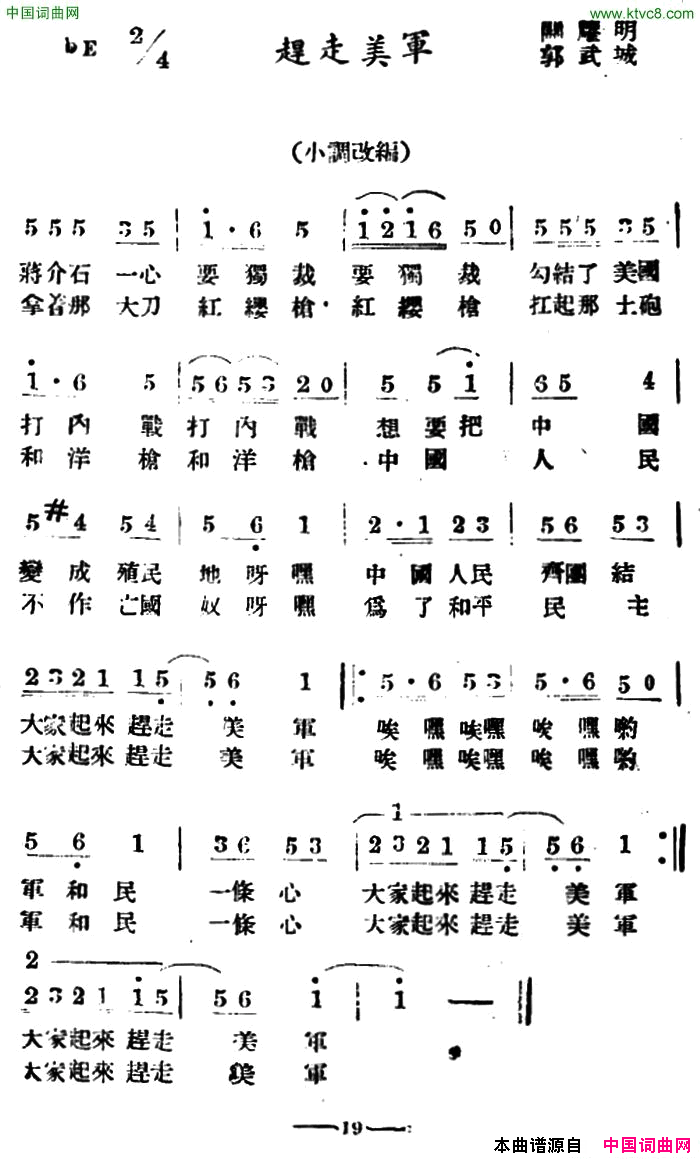 中国词曲网
www.ktvc8.com
bE 2/4 趕走美軍 關耀明
郭武城
（小調改編）
5 5 5 35 | 1·6 5 | 1216 50 | 55 5 35 |
蔣介石一心 要獨裁 要獨裁 勾結了美國
拿着那大刀 紅纓槍 紅纓槍 扛起那土砲
1·6 5 | 5653 20 | 5 51 | 65 4 |
打內戰打內戰 想要把中國
和洋槍和洋槍 中國人民
5 #4 54 | 5 6 1 | 2·1 23 | 56 53 |
變成殖民地呀嘿 中國人民齊團結
不作亡國奴呀嘿 爲了和平民主
2321 15 | 56 1 |: 5·6 53 | 5·6 50 |
大家起來趕走美軍 唉嘿唉嘿唉嘿喲
大家起來趕走美軍 唉嘿唉嘿唉嘿喲
5 6 1 | 36 53 | 2321 15 | 56 1 :|
1
軍和民 一條心 大家起來趕走美軍
軍和民 一條心 大家起來趕走美軍
2
2321 15 | 56 1 | 1 — ||
大家起來趕走美軍
大家起來趕走美軍
—19—
本曲谱源自 中国词曲网